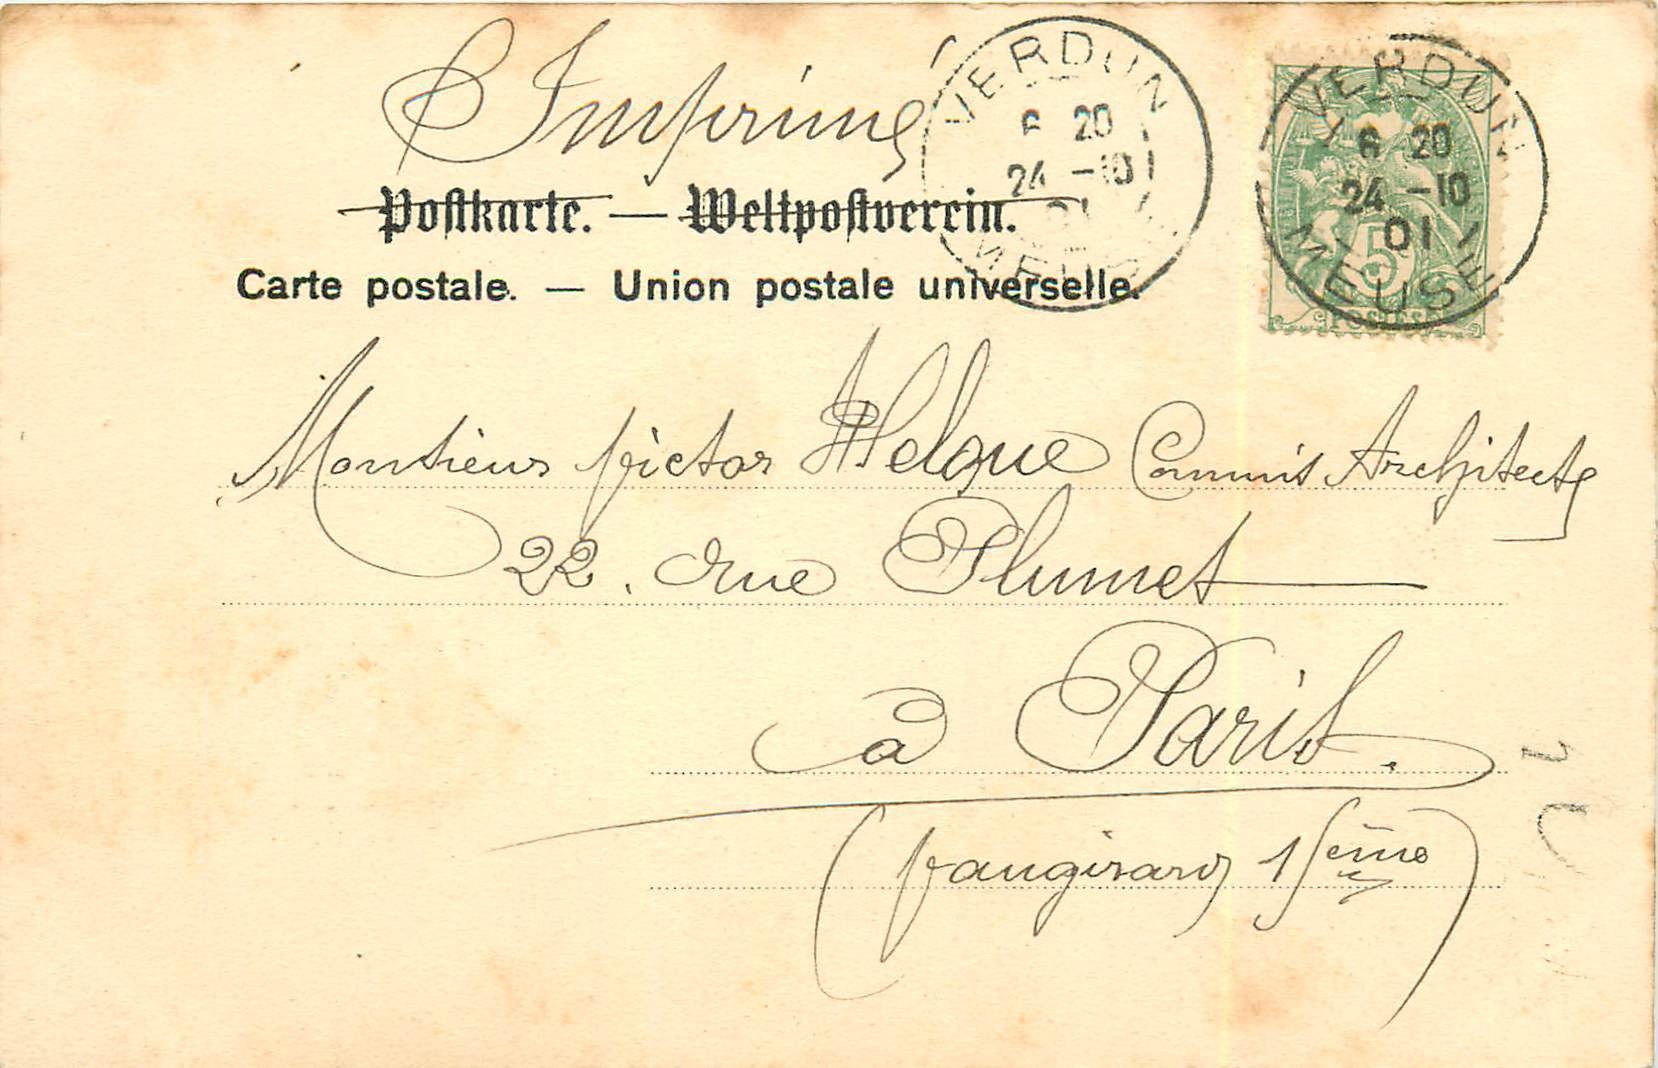 Imprimé
Postkarte. — Weltpostverein.
Carte postale. — Union postale universelle.
VERDUN
6 20
24 -10
01
MEUSE
VERDUN
6 20
24 -10
01
MEUSE
5
POSTES
Monsieur Victor Commis Architecte
22. rue Plumet
à Paris.
(Vaugirard 15ème)